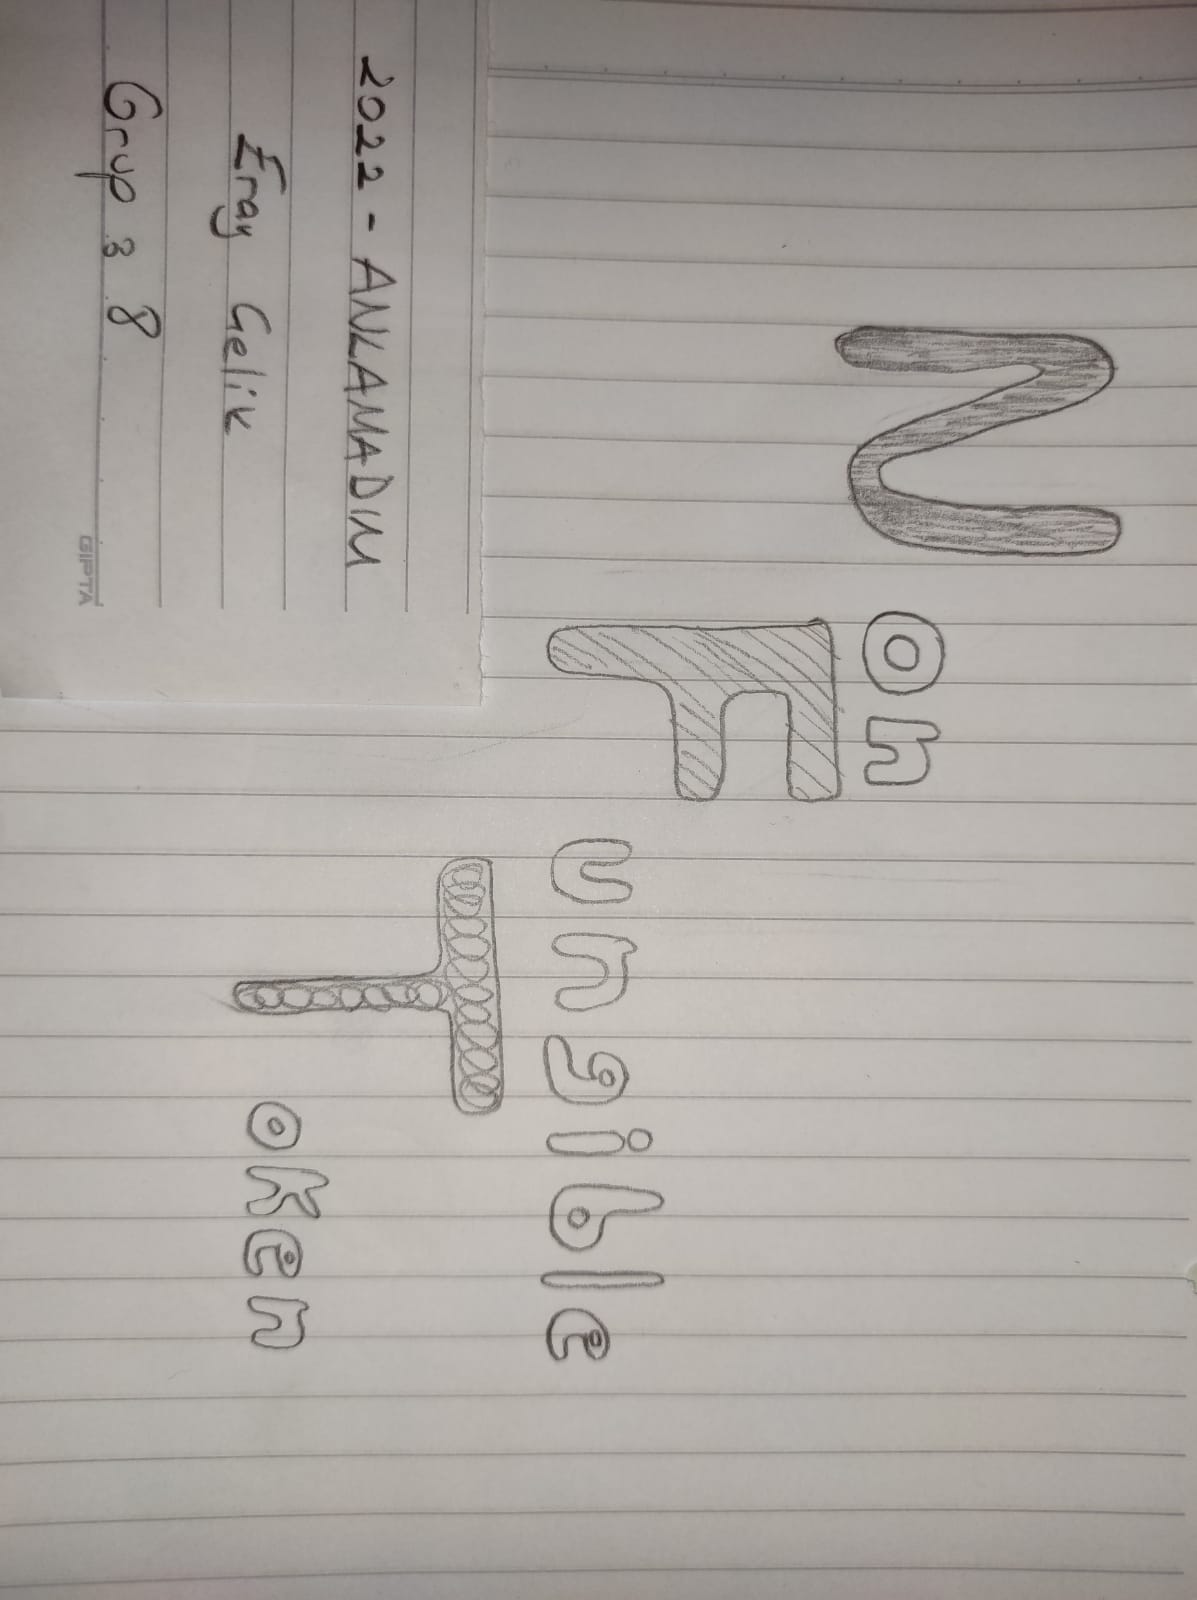 Non
Fungible
Token
2022 - ANLAMADIM
Eray Gelik
Grup : 8
GIPTA